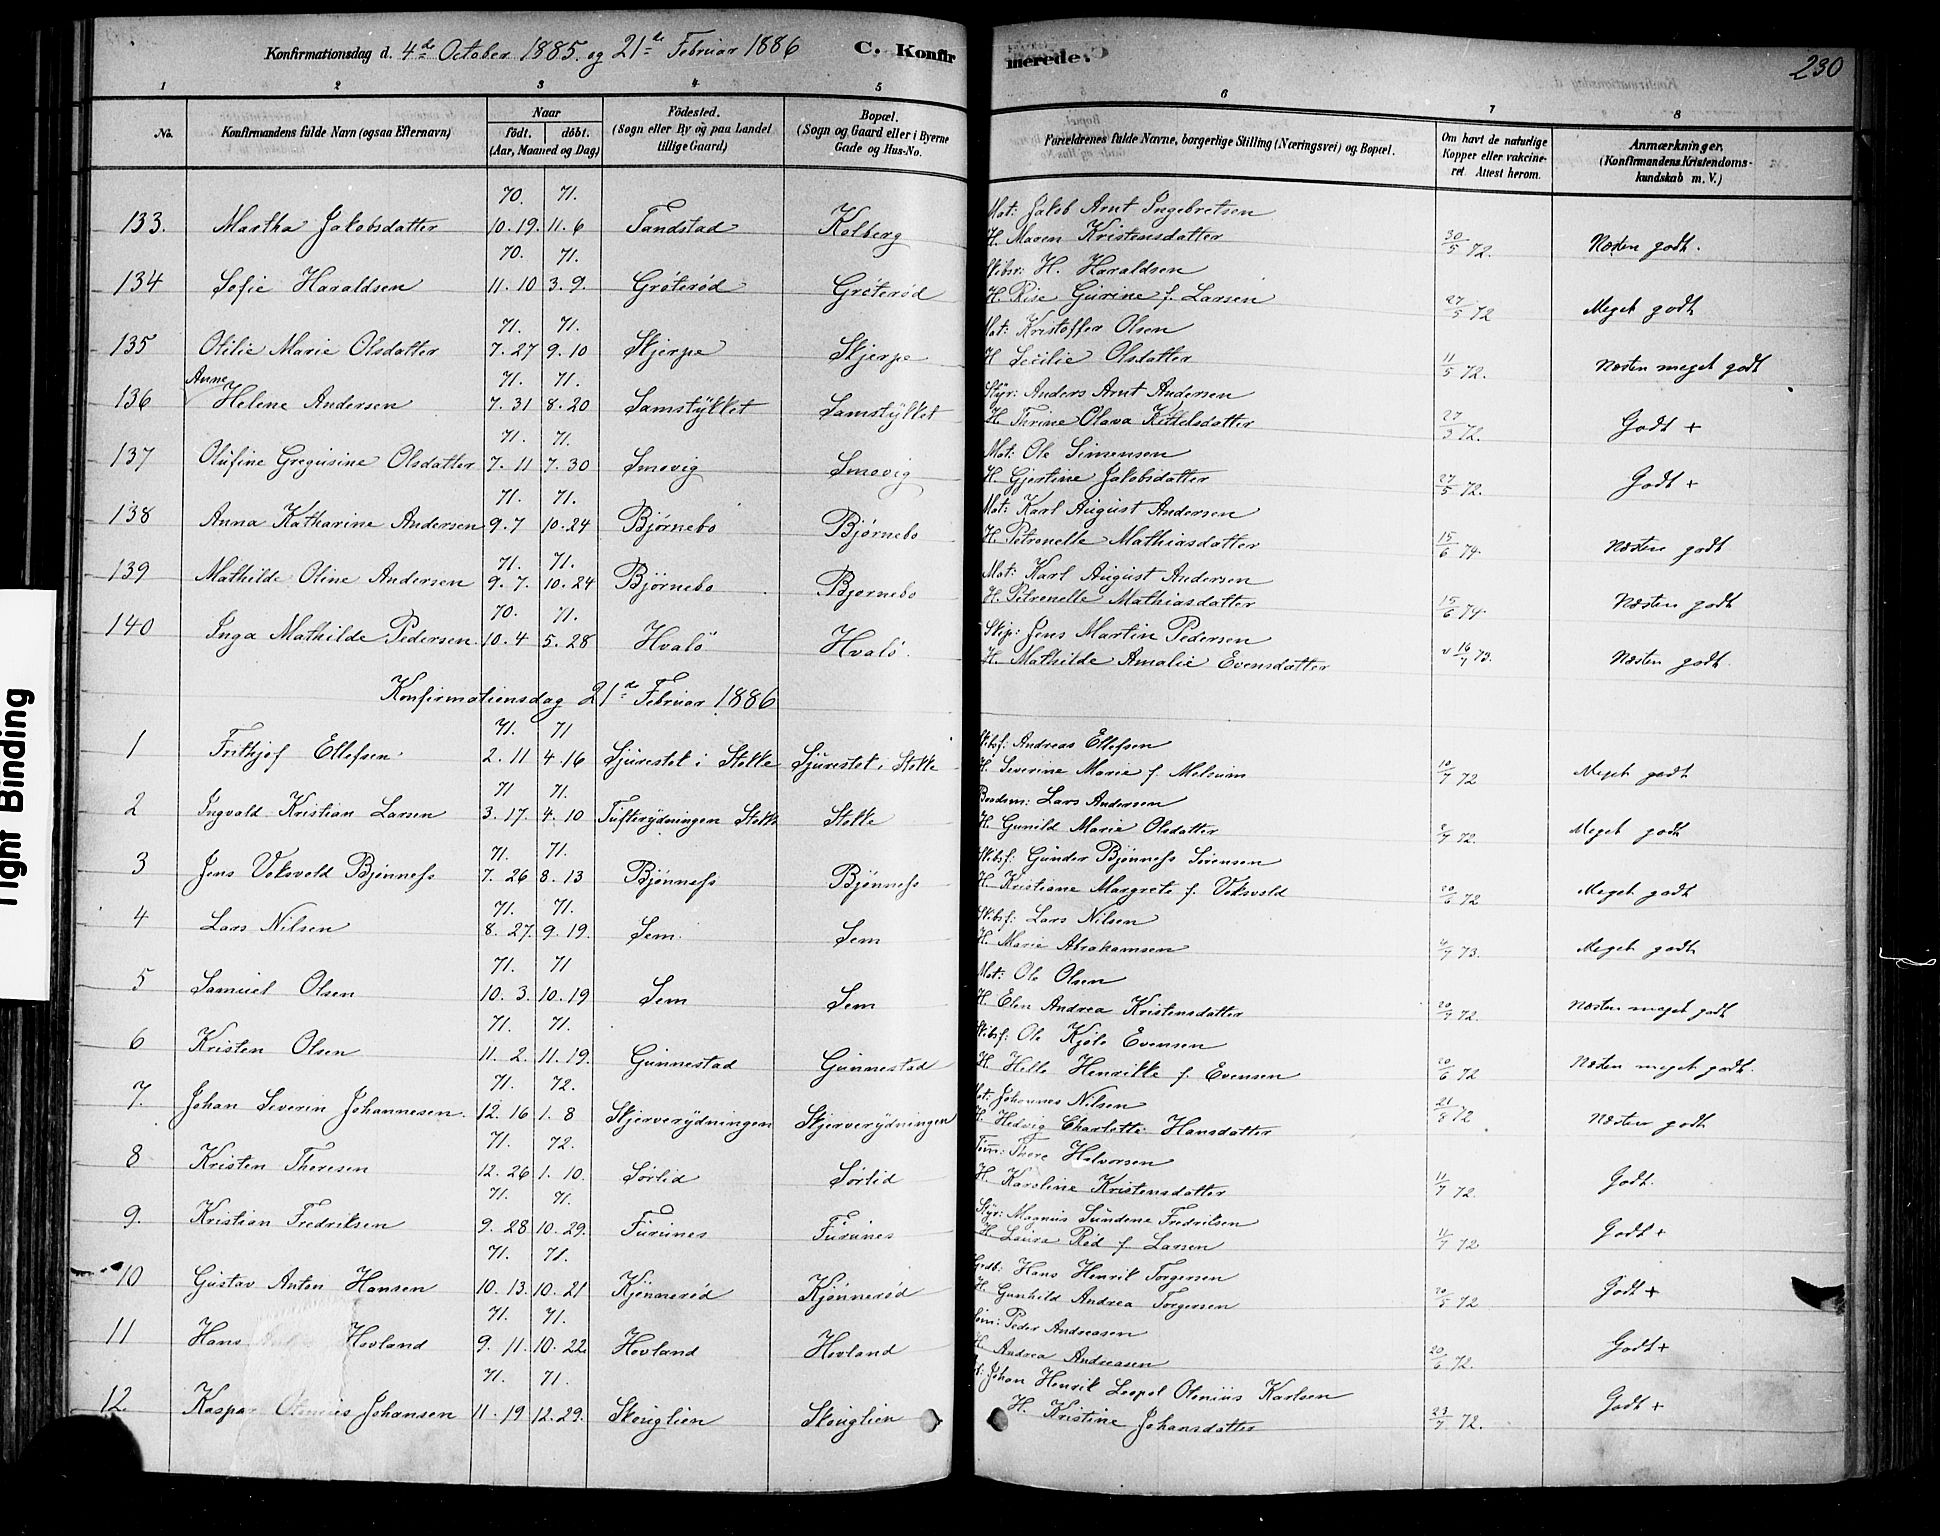 Konfirmationsdag d. 4de October 1885 og 21de Februar 1886 C. Konfirmerede. 230
1 2 3 4 5 6 7 8
No. Konfirmandens fulde Navn (ogsaa Efternavn) Naar født. døbt. (Aar, Maaned og Dag) Födested. (Sogn eller By og paa Landet tillige Gaard) Bopæl. (Sogn og Gaard eller i Byerne Gade og Hus-No. Forældrenes fulde Navne, borgerlige Stilling (Næringsvei) og Bopæl. Om havt de naturlige Kopper eller vakcineret. Attest herom. Anmærkninger. (Konfirmandens Kristendomskundskab m. V.)
70. 71. Mat: Jakob Arnt Ingebretsen
133. Martha Jakobsdatter 10.19. 11.6 Tandstad Kolberg H. Maren Kristensdatter 30/5 72. Næsten godt.
70. 71. Skibsr: H. Haraldsen
134 Sofie Haraldsen 11.10 3.9. Gröterød Gröterød H. Rise Gurine f. Larsen 27/5 72 Meget godt
71. 71. Mat: Kristoffer Olsen
135 Otilie Marie Olsdatter 7.27 9.10 Skjerpe Skjerpe H Secilie Olsdatter 11/5 72. Næsten meget godt
71. 71. Styr: Anders Arnt Andersen
136 Anne Helene Andersen 7.31 8.20 Samstykket Samstykket H. Thrine Olava Kittelsdatter 27/3 72. Godt +
71. 71. Mat: Ole Simensen
137 Olufine Gregusine Olsdatter 7.11 7.30 Smovig Smovig H. Gjertine Jakobsdatter 27/5 72. Godt +
71. 71. Mat: Karl August Andersen
138 Anna Katharine Andersen 9.7 10.24 Bjørnebo Bjørnebo H. Petronelle Mathiasdatter 15/6 74. Næsten godt
71. 71. Mat: Karl August Andersen
139 Mathilde Oline Andersen 9.7. 10.24 Bjørnebo Bjørnebo H. Petronelle Mathiasdatter 15/6 74. Næsten godt
70. 71. Skip: Jens Martin Pedersen
140 Inga Mathilde Pedersen 10.4 5.28 Hvalö Hvalö. H. Mathilde Amalie Evensdatter v 16/7 73. Næsten godt.
Konfirmationsdag 21de Februar 1886
71. 71 Skibsf: Andreas Ellefsen
1 Frithjof Ellefsen 2.11 4.16 Sjurestet i Stokke Sjurestet i Stokke H. Severine Marie f. Melsum 10/7 72 Meget godt
71 71. Lars Andersen
2 Ingvald Kristian Larsen 3.17. 4.10 Tufterydningen Stokke Stokke H. Gunild Marie Olsdatter 72. Meget godt
71. 71. Skibsf: Gunder Bjønness Sørensen
3 Jens Veksvold Bjønness 7.26 8.13 Bjønness Bjønness H. Kristiane Margrete f. Veksvold 20/6 72 Meget godt
71. 71. Skibsf: Lars Nilsen
4 Lars Nilsen 8.27. 9.19. Sem Sem H. Marie Abrahamsen 73. Meget godt
71. 71 Mat: Ole Olsen
5 Samuel Olsen 10.3. 10.19 Sem Sem H. Elen Andrea Kristensdatter 72. Næsten meget godt
71. 71. Skibsf: Ole Kjøle Evensen
6 Kristen Olsen 11.2. 11.19. Gunnestad Gunnestad H. Helle Henrikke f. Evensen 20/6 72 Næsten meget godt.
71. 72. Mat: Johannes Nilsen
7. Johan Severin Johannesen. 12.16 1.8 Skjerverydningen Skjerverydningen H. Hedvig Charlotte Hansdatter 21/8 72 Næsten godt
71. 72. Töm: Thore Halvorsen
8 Kristen Thoresen 12.26 1.10. Sørlid Sørlid H. Karoline Kristensdatter 11/7 72. Godt.
71. 71. Styr: Magnus Sundene Fredriksen
9. Kristian Fredriksen 9.28 10.29. Furunes Furunes H Laura Rød f. Larsen 11/7 72 Godt +
71. 71. Hans Henrik Torgersen
10 Gustav Anton Hansen 10.13. 10.21 Kjønnerød Kjønnerød H. Gunhild Andrea Torgersen 20/5 72 Godt +
71. 71. Töm: Peder Andreasen
11 Hans Hovland 9.11. 10.22 Hovland Hovland H. Andrea Andreasen 72. Godt +
71. 71. Johan Henrik Leopol Otenius Karlsen
12. Kaspar Otenius Johansen 11.19 12.29. Skouglien Skouglien H. Kristine Johansdatter 23/7 72. Godt +
Tight Binding